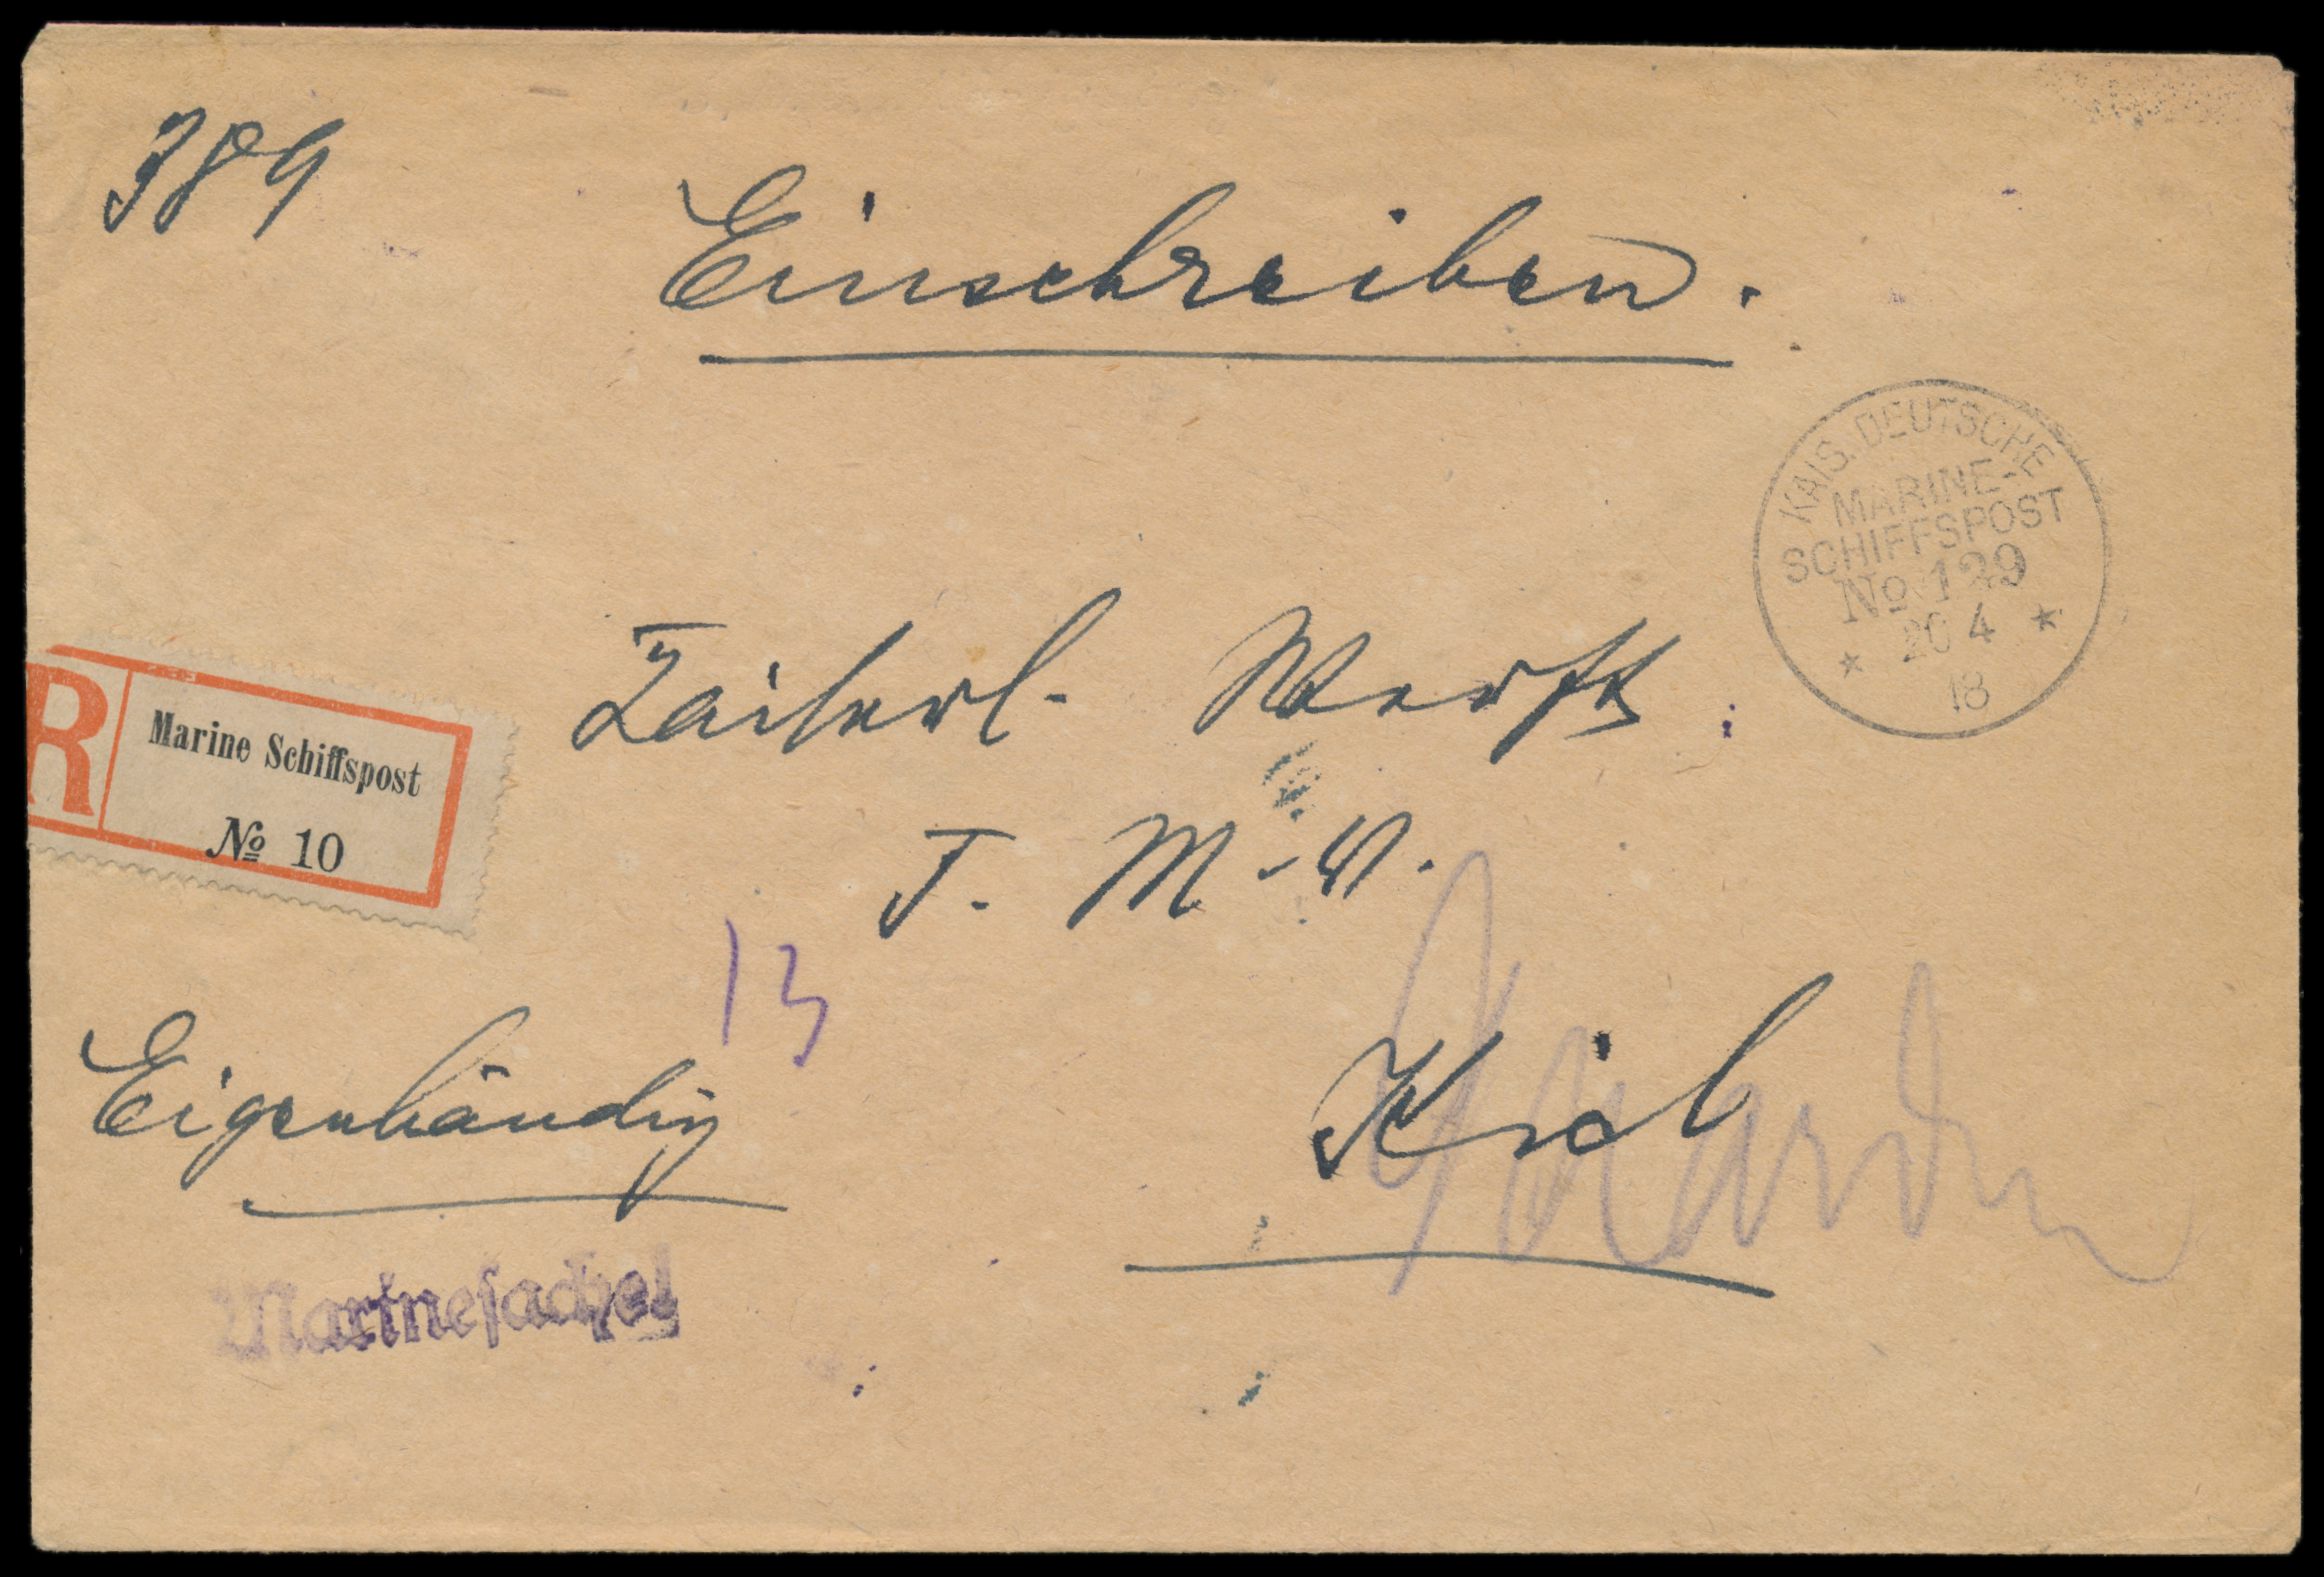 389
Einschreiben.
KAIS. DEUTSCHE
MARINE-
SCHIFFSPOST
No 129
20 4
18
Kaiserl. Werft
R
Marine Schiffspost
No 10
T. M-V.
13
Eigenhändig
Kiel
Marinesache!